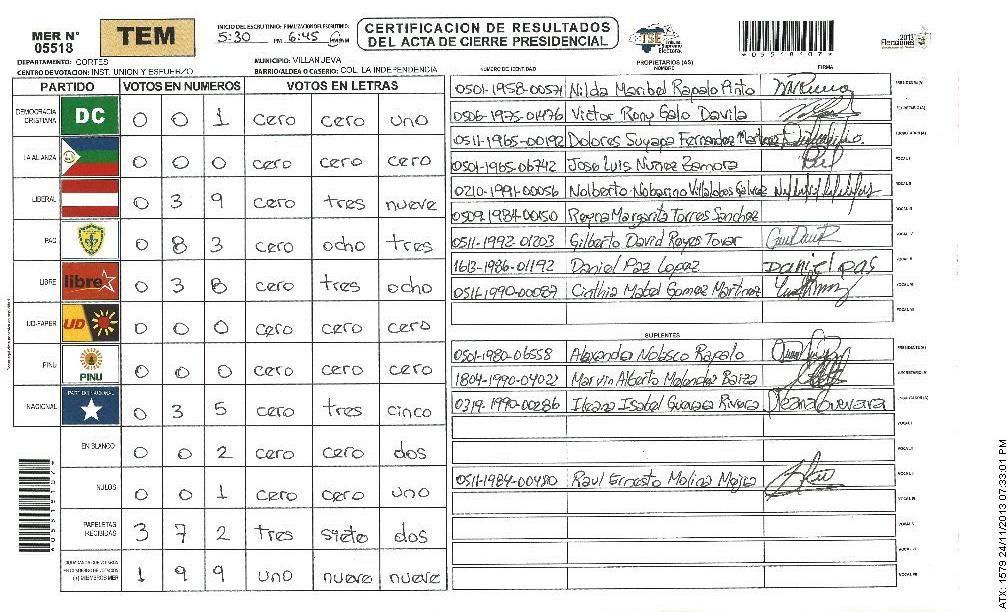 MER N° 05518
TEM
INICIO DEL ESCRUTINIO: FINALIZACION DEL ESCRUTINIO:
5:30 PM 6:45 PM
CERTIFICACION DE RESULTADOS
DEL ACTA DE CIERRE PRESIDENCIAL
TSE
Tribunal Supremo Electoral
2013
Elecciones
DEPARTAMENTO: CORTES
MUNICIPIO: VILLANUEVA
CENTRO DE VOTACION: INST. UNION Y ESFUERZO
BARRIO/ALDEA O CASERIO: COL. LA INDEPENDENCIA
PARTIDO VOTOS EN NUMEROS VOTOS EN LETRAS
DEMOCRACIA CRISTIANA DC 0 0 1 cero cero uno
LA ALIANZA 0 0 0 cero cero cero
LIBERAL 0 3 9 cero tres nueve
PAC 0 8 3 cero ocho tres
LIBRE libre 0 3 8 cero tres ocho
UD-FAPER UD 0 0 0 cero cero cero
PINU PINU 0 0 0 cero cero cero
NACIONAL PARTIDO NACIONAL 0 3 5 cero tres cinco
EN BLANCO 0 0 2 cero cero dos
NULOS 0 0 1 cero cero uno
PAPELETAS RECIBIDAS 3 7 2 tres siete dos
1 9 9 uno nueve nueve
NUMERO DE IDENTIDAD PROPIETARIOS (AS) NOMBRE FIRMA
0501-1958-00571 Nilda Maribel Rapalo Pinto PRESIDENTE(A)
0506-1975-01476 Victor Rony Galo Davila SECRETARIO(A)
0511-1965-00192 Dolores Suyapa Fernandez Martinez ESCRUTADOR(A)
0501-1965-06742 Jose Luis Nuñez Zamora VOCAL I
0210-1991-00056 Nolberto Nabarino Villalobos Galvez VOCAL II
0509-1984-00150 Reyna Margarita Torres Sanchez VOCAL III
0511-1992-01203 Gilberto David Reyes Tovar VOCAL IV
1613-1986-01192 Daniel Paz Lopez Daniel pas VOCAL V
0511-1990-00087 Cinthia Mabel Gomez Martinez VOCAL VI
VOCAL VII
SUPLENTES
0501-1980-06558 Alexander Nolasco Rapalo PRESIDENTE(A)
1804-1990-04022 Marvin Alberto Melendez Baiza SECRETARIO(A)
0319-1990-00286 Ileana Isabel Guevara Rivera Ileana Guevara ESCRUTADOR(A)
VOCAL I
0511-1984-00480 Raul Ernesto Molina Mejia VOCAL II
VOCAL III
VOCAL IV
VOCAL V
VOCAL VI
VOCAL VII
ATX: 1579 24/11/2013 07:33:01 PM